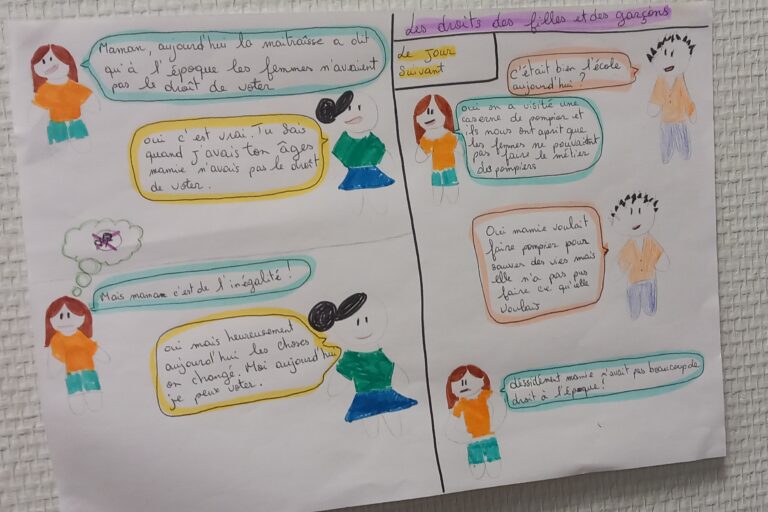 Maman, aujourd'hui la maitraîsse a dit
qu'à l'époque les femmes n'avaient
pas le droit de voter
oui c'est vrai. Tu sais
quand j'avais ton âges
mamie n'avais pas le droit
de voter.
Mais maman c'est de l'inégalité !
oui mais heureusement
aujourd'hui les choses
on changé. Moi aujourd'hui
je peux voter.
Les droits des filles et des garçons
Le Jour
Suivant
C'était bien l'école
aujourd'hui ?
oui on a visité une
caserne de pompier et
ils nous ont aprit que
les femmes ne pouvaient
pas faire le métier
des pompiers
Oui mamie voulait
faire pompier pour
sauver des vies mais
elle n'a pas pus
faire ce qu'elle
voulais
déssidément mamie n'avait pas beaucoup de
droit à l'époque !